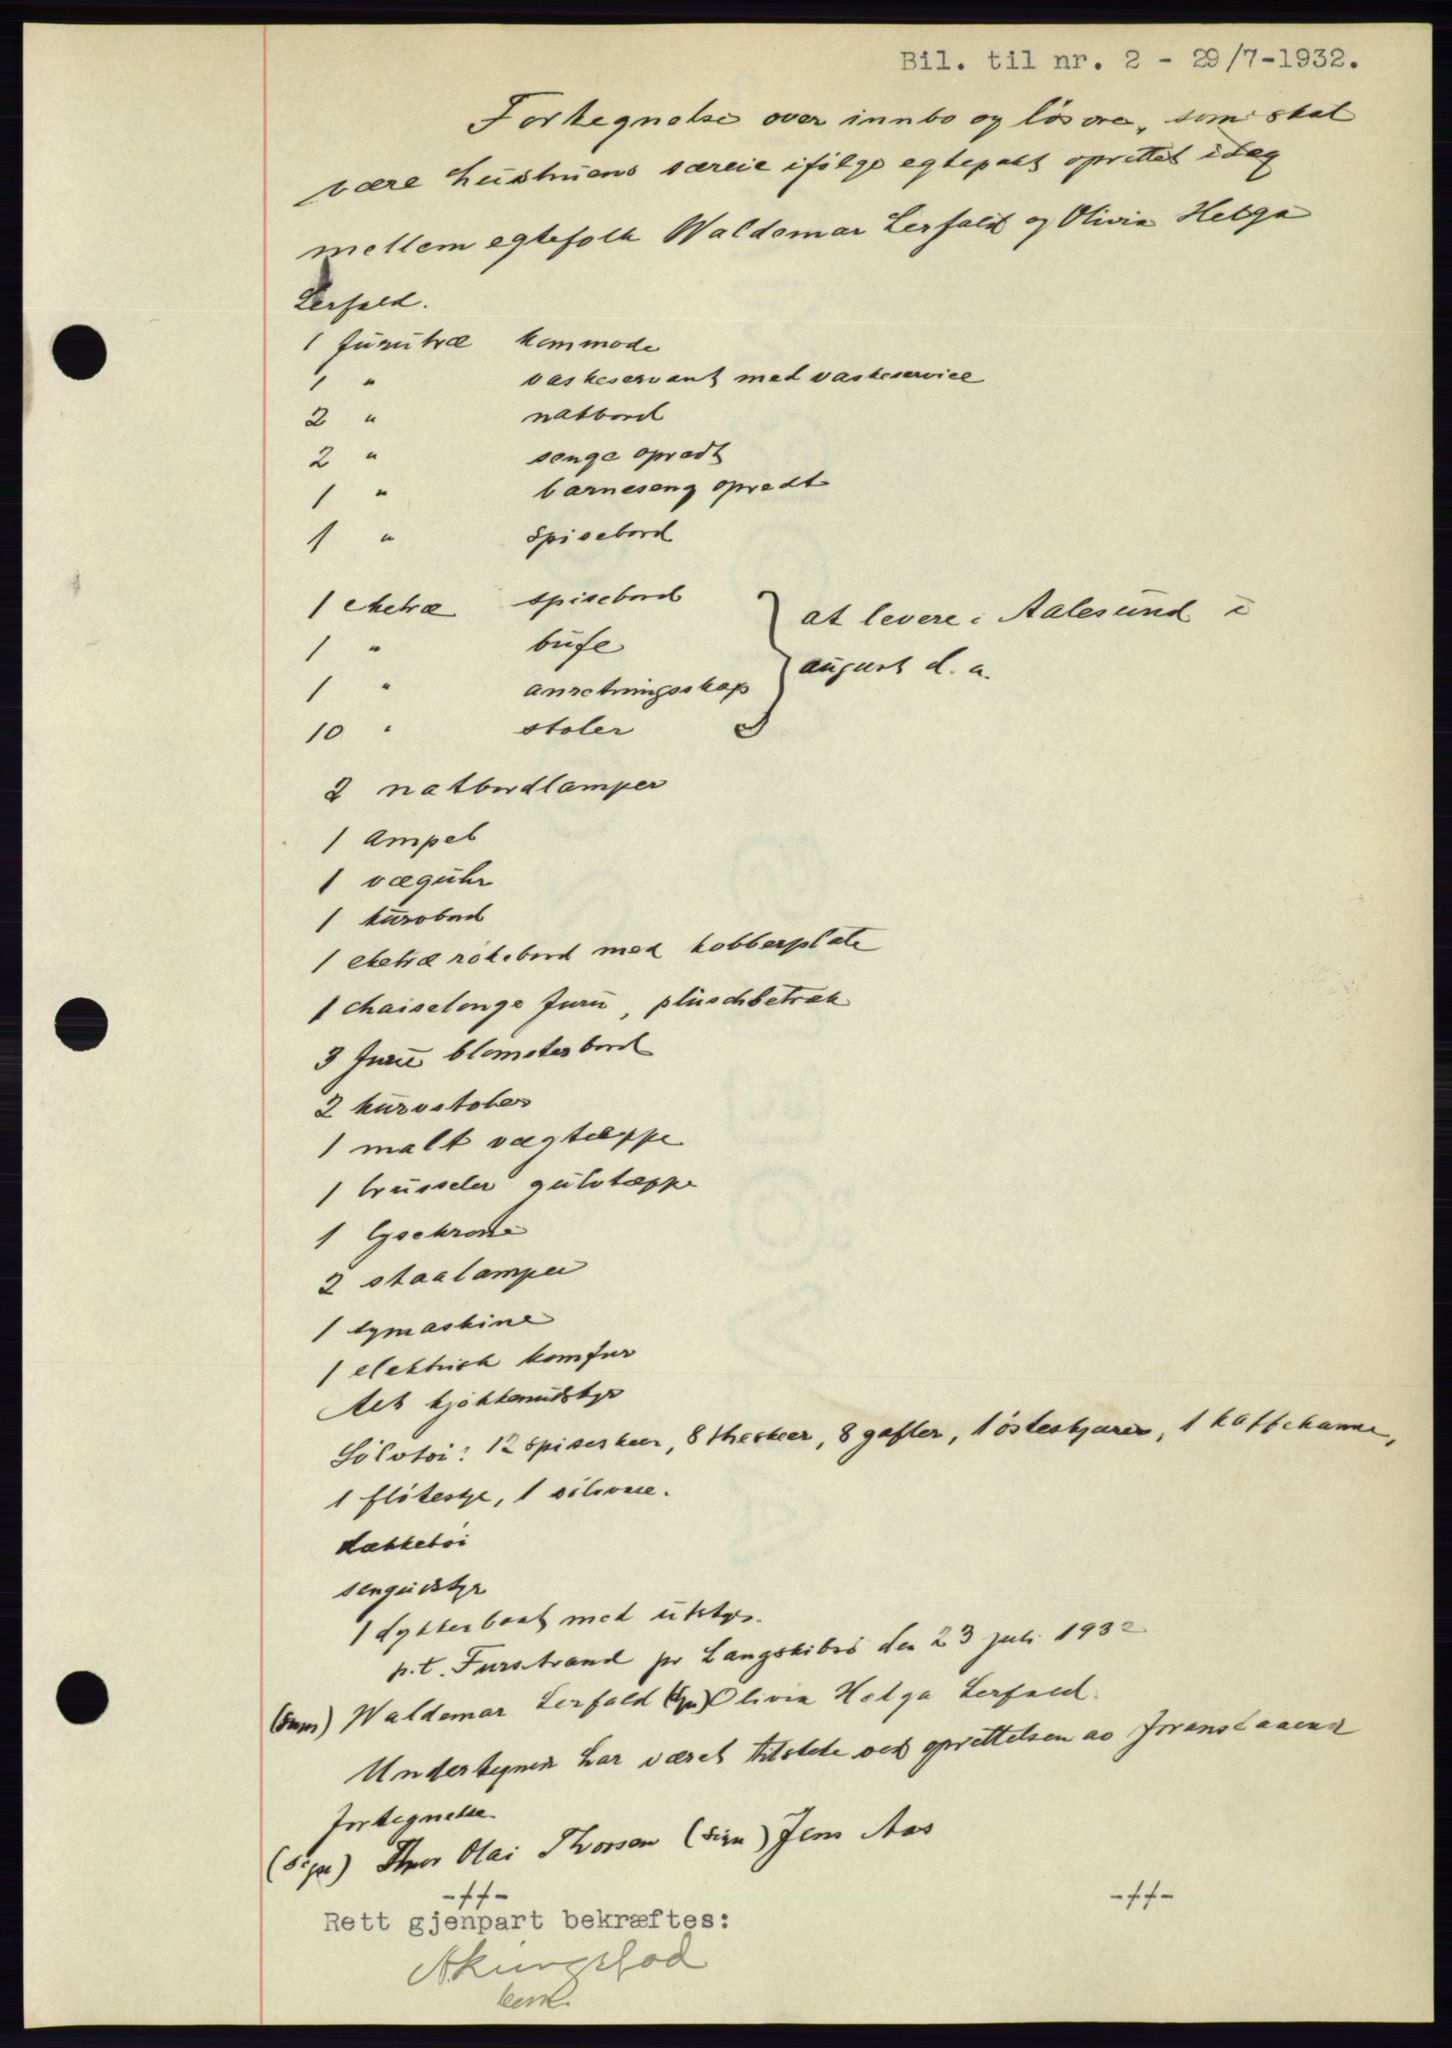 Bil. til nr. 2 - 29/7-1932.
Fortegnelse over innbo og lösöre, som skal
være hustruens særeie ifölge egtepakt oprettet idag
mellem egtefolk Waldemar Lerfald og Olivia Helga
Lerfald.
1 furutræ kommode
1 " vaskeservant med vaskeservice
2 " natbord
2 " senge opredt
1 " barneseng opredt
1 " spisebord
1 eketræ spisebord
1 " bufe
1 " anretningsskap
10 " stoler
at levere i Aalesund i
august d. a.
2 natbordlamper
1 ampel
1 væguhr
1 kurvbord
1 eketræ rökebord med kobberplate
1 chaiselonge furu, plüschbetræk
3 furu blomsterbord
2 kurvstoler
1 malt vægtæppe
1 brusseler gulvtæppe
1 lysekrone
2 staalamper
1 symaskine
1 elektrisk komfur
Alt kjökkenudstyr
Sölvtöi: 12 spiseskeer, 8 theskeer, 8 gafler, 1 osteskjærer, 1 kaffekanne,
1 flötestje, 1 sölvvase.
Dækketöi
sengudstyr
1 lysterbaat med utstyr.
p.t. Furstrand pr Langskibsö den 23 juli 1932
(Sign) Waldemar Lerfald (Sgn) Olivia Helga Lerfald.
Undertegnede har været tilstede ved oprettelsen av foranstaaende
fortegnelse.
(Sign) Thor Olai Thorsen (Sign) Jens Aas
-//- -//-
Rett gjenpart bekræftes: